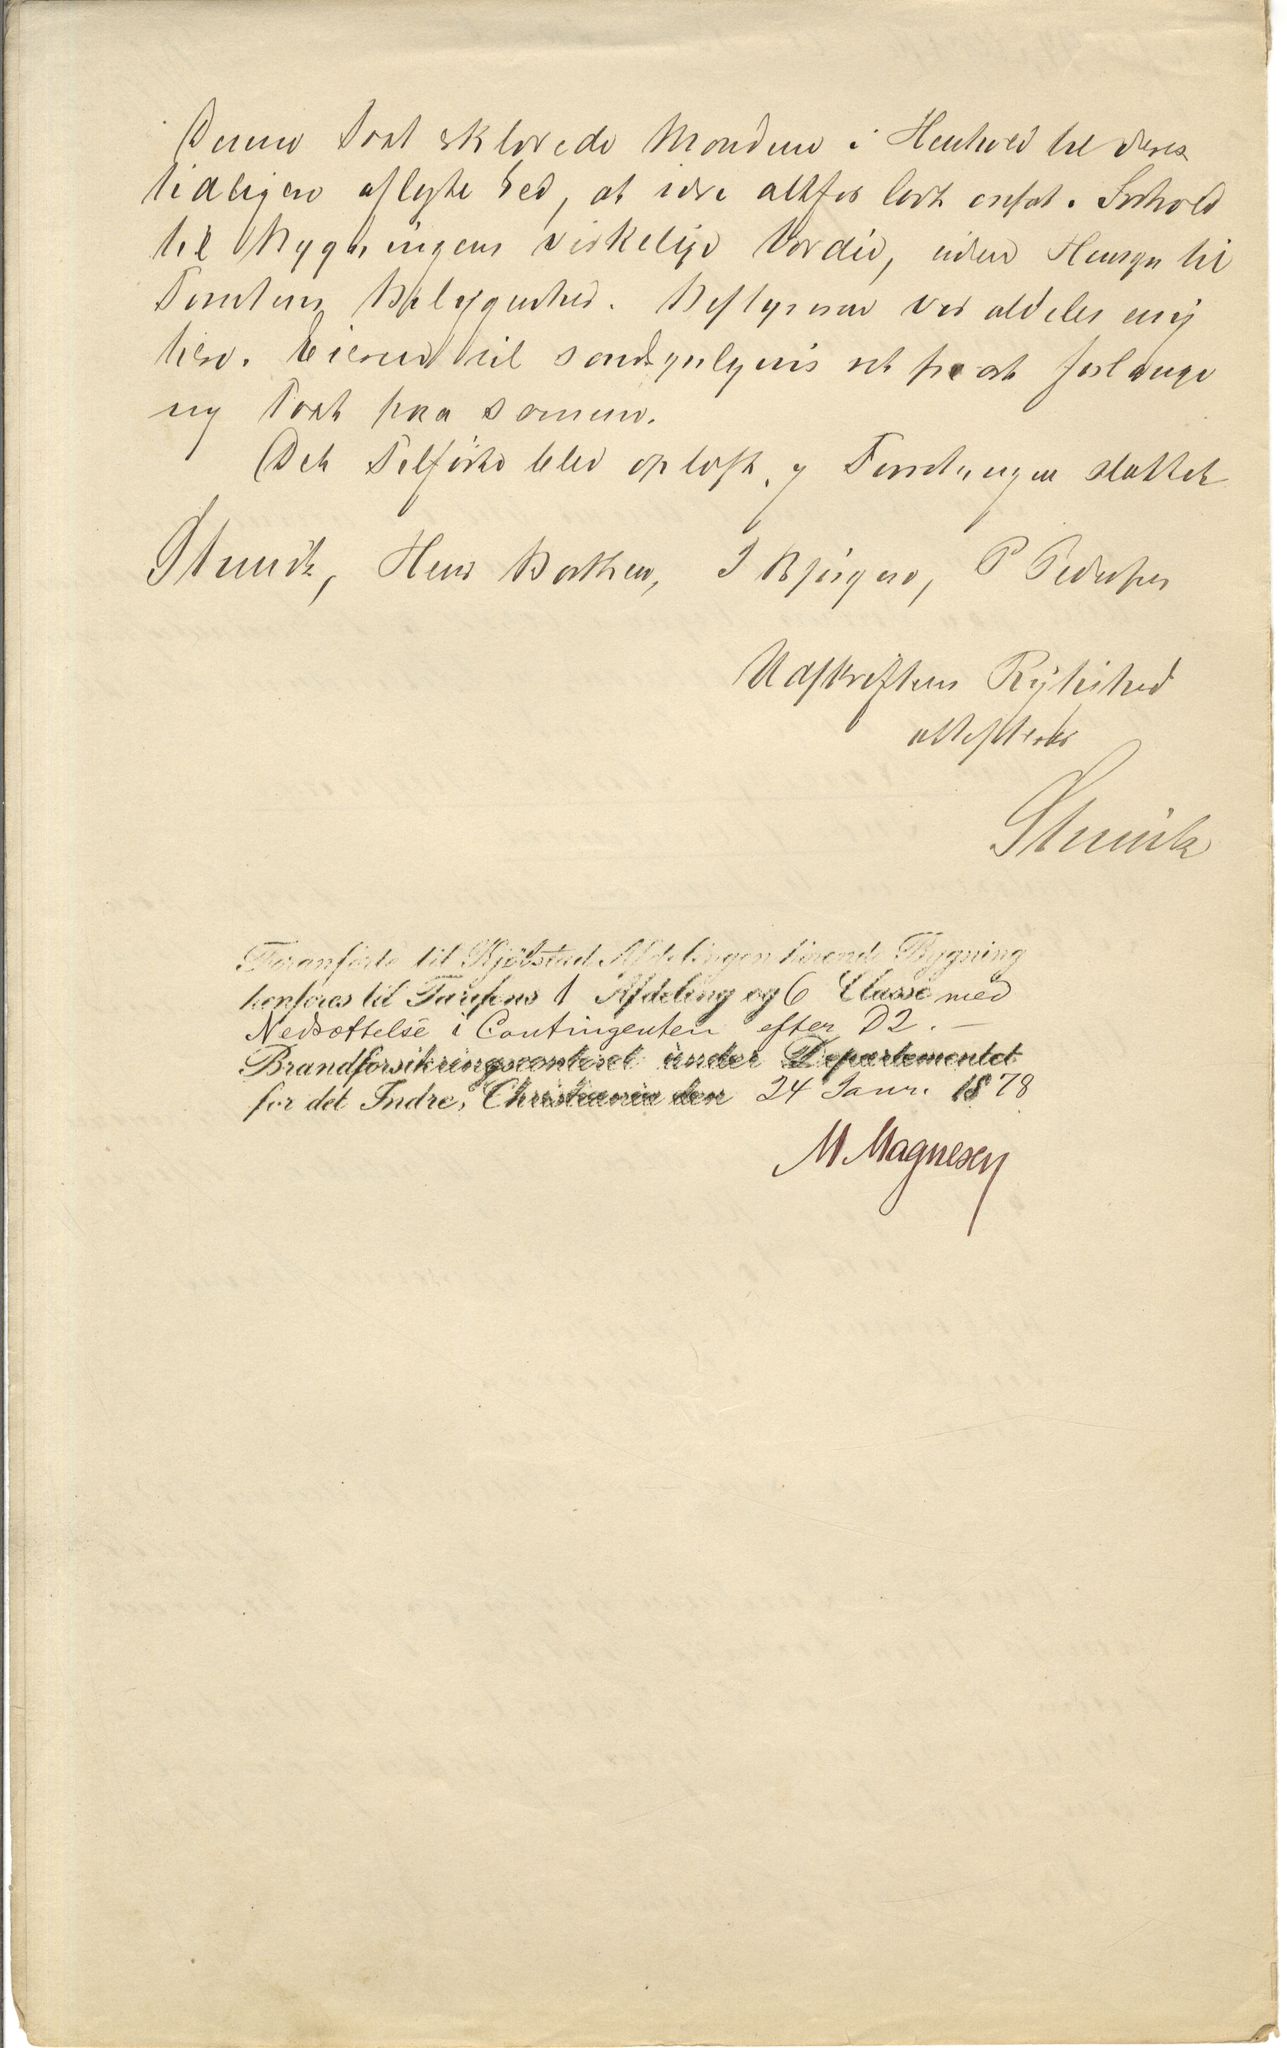 Denne Taxt erklærede Mændene i Henhold til deres
tidligere aflagte Ed, at være altfor lavt ansat i Forhold
til Bygningens virkelige Værdie, uden Hensyn til
Tomtens Beliggenhed. Bestyreren var aldeles enig
heri. Eieren vil sandsynligvis af frastat forlange
ny Taxt paa samme.
Det Tilførte blev oplæst, og Forretningen sluttet
Hans J P Pedersen
Udskriftens Rigtighed
attesterer
Foranførte til Kjøbstad Afdelingen hørende Bygning
henføres til Tarifens 1 Afdeling og 6 Classe med
Nedsættelse i Contingenten efter D2. —
Brandforsikringscontoret under Departementet
for det Indre, Christiania den 24 Janr. 1878
M Magnesen